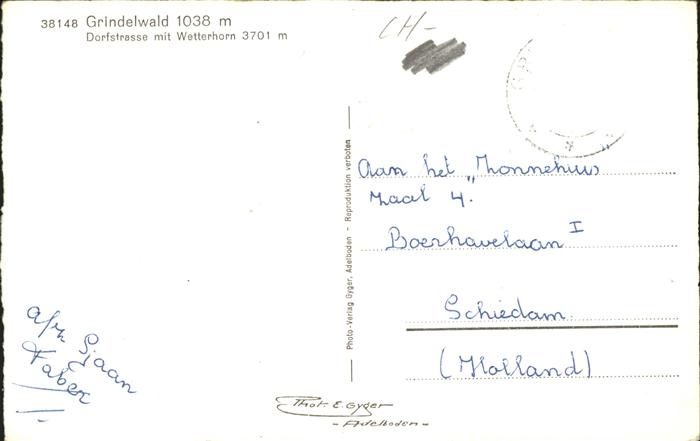 38148 Grindelwald 1038 m
Dorfstrasse mit Wetterhorn 3701 m
CH-
Aan het „Zonnehuis"
Zaal 4.
Boerhavelaan I
Schiedam.
(Holland)
Photo-Verlag Gyger, Adelboden - Reproduktion verboten
afz Sjaan
Faber
Phot. E. Gyger
- Adelboden -